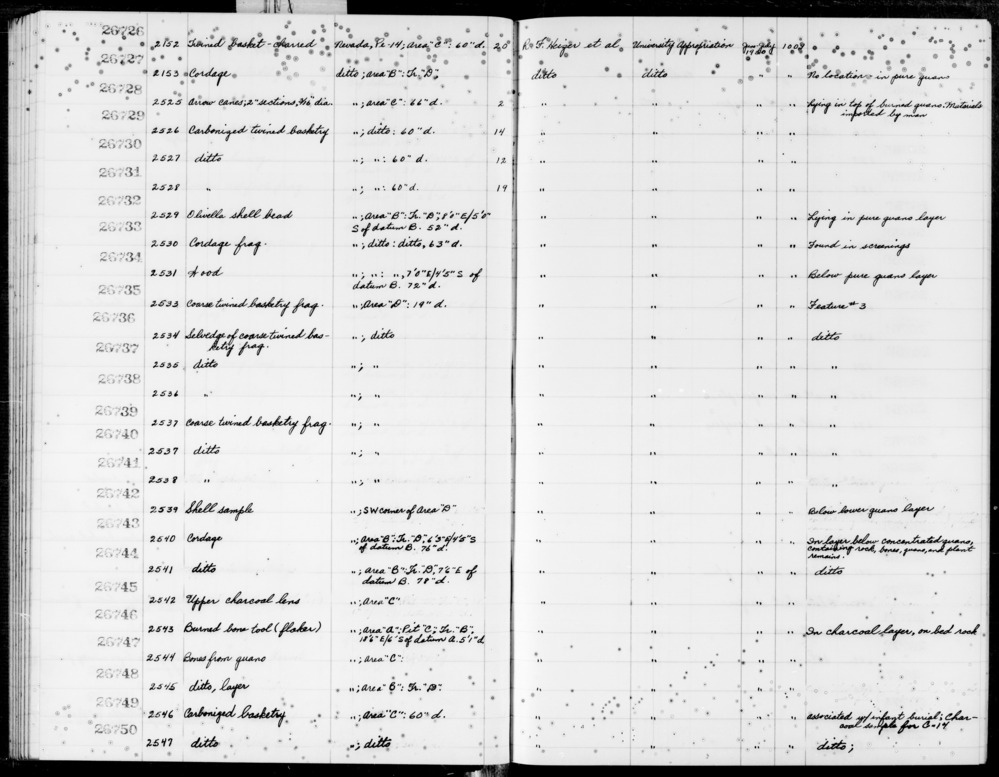 26726
2152 Twined basket - charred Nevada, Pe-14; Area "C": 60" d. 20 R. F. Heizer et al University Appropriation Jan-July 1950 1009
26727
2153 Cordage ditto; area "B": Tr. "D", ditto ditto " " No location - in pure guano
26728
2525 Arrow canes; 2" sections, 5/16 dia. "; area "C": 66" d. 2 " " " " Lying in top of burned guano. Materials
imported by man
26729
2526 Carbonized twined basketry "; ditto: 60" d. 14 " " " "
26730
2527 ditto "; ": 60" d. 12 " " " "
26731
2528 " "; ": 60" d. 19 " " " "
26732
2529 Olivella shell bead "; Area "B": Tr. "D", 8'0" E/5'8" " " " " Lying in pure guano layer
S of datum B. 52" d.
26733
2530 Cordage frag. "; ditto: ditto, 63" d. " " " " Found in screenings
26734
2531 Wood "; ": ", 7'0" E/4'5" S of " " " " Below pure guano layer
datum B. 72" d.
26735
2533 Coarse twined basketry frag. "; Area "D": 19" d. " " " " Feature # 3
26736
2534 Selvedge of coarse twined bas- "; ditto " " " " ditto
ketry frag.
26737
2535 ditto "; " " " " " "
26738
2536 " "; " " " " " "
26739
2537 Coarse twined basketry frag. "; " " " " " "
26740
2537 ditto "; " " " " "
26741
2538 " "; " " " " " "
26742
2539 Shell sample "; SW corner of Area "D" " " " " Below lower guano layer
26743
2540 Cordage "; Area "B": Tr. "D", 6'3" E/4'5" S " " " " In layer below concentrated guano,
of datum B. 76" d. containing rock, bones, guano, and plant
remains.
26744
2541 ditto "; area "B": Tr. "D", 7'6" E of " " " " ditto
datum B. 78" d.
26745
2542 Upper charcoal lens "; Area "C" " " " "
26746
2543 Burned bone tool (flaker) "; area "A": Pit "C", Tr. "B", " " " " In charcoal layer, on bed rock
18'6" E/6' S of datum A. 5'1" d
26747
2544 Bones from guano "; area "C": " " " "
26748
2545 ditto, layer "; area "B": Tr. "D". " " " "
26749
2546 Carbonized basketry "; area "C": 60" d. " " " " associated w/ infant burial; Char-
coal sample for C-14
26750
2547 ditto "; ditto " " " " ditto;